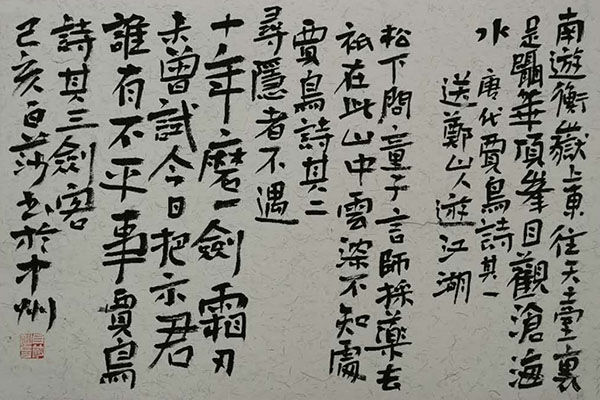 南遊衡嶽上東往天臺裏
足躡華頂峯目觀滄海
水 唐代賈島詩其一
送鄭山人遊江湖
松下問童子言師採藥去
祇在此山中雲深不知處
賈島詩其二
尋隱者不遇
十年磨一劍霜刃
未曾試今日把示君
誰有不平事賈島
詩其三劍客
己亥百莎书於中州